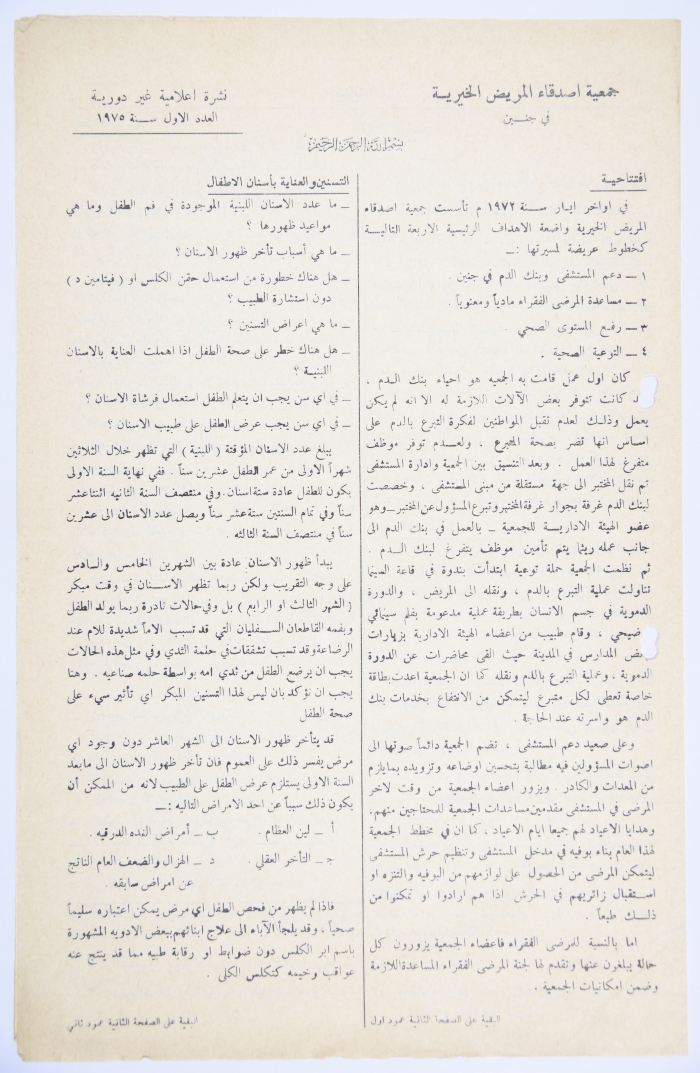 جمعية اصدقاء المريض الخيرية
في جنين
نشرة اعلامية غير دورية
العدد الاول سنة ١٩٧٥
بسم الله الرحمن الرحيم
افتتاحية
في اواخر ايار سنة ١٩٧٢ م تأسست جمعية اصدقاء
المريض الخيرية واضعة الاهداف الرئيسية الاربعة التالية
كخطوط عريضة لمسيرتها :ـ
١ ـ دعم المستشفى وبنك الدم في جنين .
٢ ـ مساعدة المرضى الفقراء مادياً ومعنوياً .
٣ ـ رفع المستوى الصحي .
٤ ـ التوعية الصحية .
كان اول عمل قامت به الجمعيه هو احياء بنك الدم ،
كانت تتوفر بعض الآلات اللازمة له الا انه لم يكن
يعمل وذلك لعدم تقبل المواطنين لفكرة التبرع بالدم على
اساس انها تضر بصحة المتبرع ، ولعدم توفر موظف
متفرغ لهذا العمل . وبعد التنسيق بين الجمعية وادارة المستشفى
تم نقل المختبر الى جهة مستقلة من مبنى المستشفى ، وخصصت
لبنك الدم غرفة بجوار غرفة المختبر وتبرع المسؤول عن المختبر ـ وهو
عضو الهيئة الادارية للجمعية ـ بالعمل في بنك الدم الى
جانب عمله ريثما يتم تأمين موظف يتفرغ لبنك الدم .
ثم نظمت الجمعية حملة توعية ابتدأت بندوة في قاعة السينما
تناولت عملية التبرع بالدم ، ونقله الى المريض ، والدورة
الدموية في جسم الانسان بطريقة عملية مدعومة بفلم سينمائي
ضيحي ، وقام طبيب من اعضاء الهيئة الادارية بزيارات
ض المدارس في المدينة حيث القى محاضرات عن الدورة
الدموية ، وعملية التبرع بالدم ونقله كما ان الجمعية اعدت بطاقة
خاصة تعطى لكل متبرع ليتمكن من الانتفاع بخدمات بنك
الدم هو واسرته عند الحاجة .
وعلى صعيد دعم المستشفى ، تضم الجمعية دائماً صوتها الى
اصوات المسؤولين فيه مطالبة بتحسين اوضاعه وتزويده بما يلزم
من المعدات والكادر . ويزور اعضاء الجمعية من وقت لاخر
المرضى في المستشفى مقدمين مساعدات الجمعية للمحتاجين منهم،
وهدايا الاعياد لهم جميعا ايام الاعياد ، كما ان في مخطط الجمعية
لهذا العام بناء بوفيه في مدخل المستشفى وتنظيم حرش المستشفى
ليتمكن المرضى من الحصول على لوازمهم من البوفيه والتنزه او
استقبال زائريهم في الحرش اذا هم ارادوا او تمكنوا من
ذلك طبعاً .
اما بالنسبة للمرضى الفقراء فاعضاء الجمعية يزورون كل
حالة يبلغون عنها وتقدم لها لجنة المرضى الفقراء المساعدة اللازمة
وضمن امكانيات الجمعية .
البقية على الصفحة الثانية عمود اول
التسنين والعناية بأسنان الاطفال
ـ ما عدد الاسنان اللبنية الموجودة في فم الطفل وما هي
مواعيد ظهورها ؟
ـ ما هي أسباب تأخر ظهور الاسنان ؟
ـ هل هناك خطورة من استعمال حقن الكلس او ( فيتامين د )
دون استشارة الطبيب ؟
ـ ما هي اعراض التسنين ؟
ـ هل هناك خطر على صحة الطفل اذا اهملت العناية بالاسنان
اللبنية ؟
ـ في اي سن يجب ان يتعلم الطفل استعمال فرشاة الاسنان ؟
ـ في اي سن يجب عرض الطفل على طبيب الاسنان ؟
يبلغ عدد الاسنان المؤقتة ( اللبنية ) التي تظهر خلال الثلاثين
شهراً الاولى من عمر الطفل عشرين سناً . ففي نهاية السنة الاولى
يكون للطفل عادة ستة اسنان . وفي منتصف السنة الثانيه اثنتا عشر
سناً وفي تمام السنتين ستة عشر سناً ويصل عدد الاسنان الى عشرين
سناً في منتصف السنة الثالثه .
يبدأ ظهور الاسنان عادة بين الشهرين الخامس والسادس
على وجه التقريب ولكن ربما تظهر الاسنان في وقت مبكر
( الشهر الثالث او الرابع ) بل وفي حالات نادرة ربما يولد الطفل
وبفمه القاطعان السفليان التي قد تسبب الاماً شديدة للام عند
الرضاعة وقد تسبب تشققات في حلمة الثدي وفي مثل هذه الحالات
يجب ان يرضع الطفل من ثدي امه بواسطة حلمه صناعيه . وهنا
يجب ان نؤكد بان ليس لهذا التسنين المبكر اي تأثير سيء على
صحة الطفل
قد يتأخر ظهور الاسنان الى الشهر العاشر دون وجود اي
مرض يفسر ذلك على العموم فان تأخر ظهور الاسنان الى ما بعد
السنة الاولى يستلزم عرض الطفل على الطبيب لانه من الممكن أن
يكون ذلك سبباً عن احد الامراض التاليه :ـ
أ ـ لين العظام . ب ـ أمراض الغده الدرقيه .
جـ ـ التأخر العقلي . د ـ الهزال والضعف العام الناتج
عن امراض سابقه .
فاذا لم يظهر من فحص الطفل اي مرض يمكن اعتباره سليماً
صحياً ، وقد يلجأ الآباء الى علاج ابنائهم ببعض الادويه المشهورة
باسم ابر الكلس دون ضوابط او رقابة طبيه مما قد ينتج عنه
عواقب وخيمه كتكلس الكلى .
البقية على الصفحة الثانية عمود ثاني